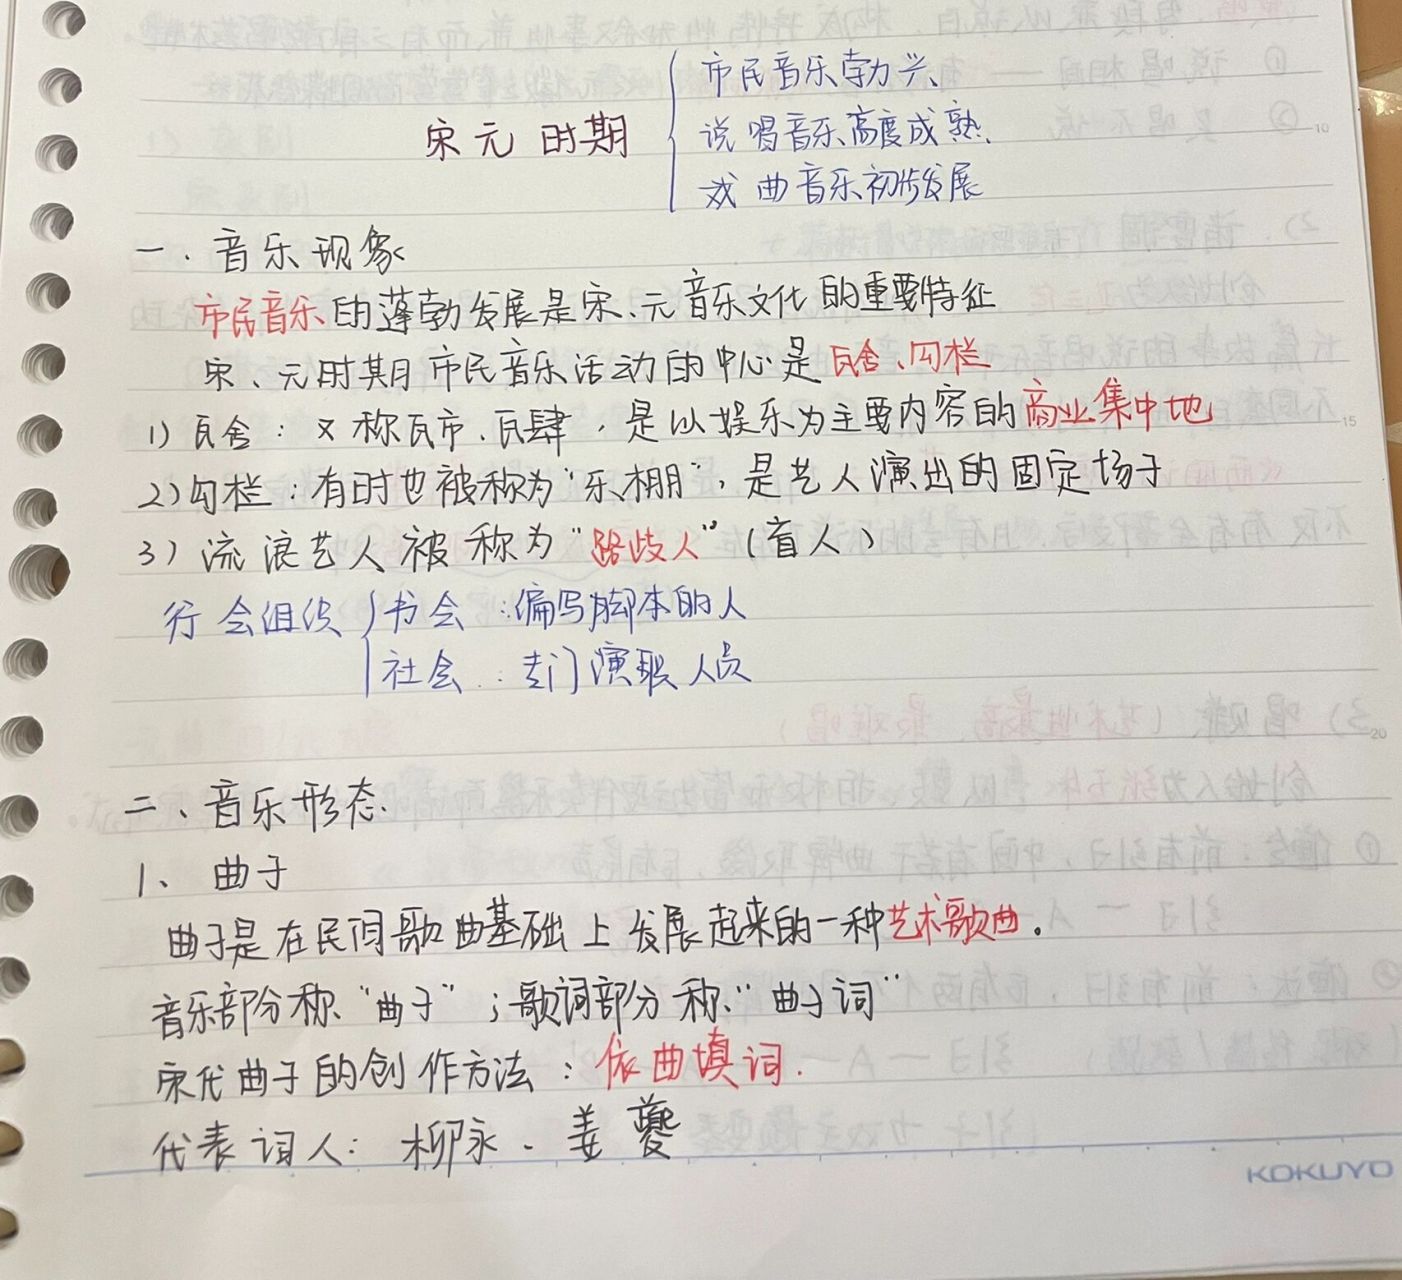 宋元时期
市民音乐勃兴、
说唱音乐高度成熟、
戏曲音乐初步发展
一、音乐现象
市民音乐的蓬勃发展是宋、元音乐文化的重要特征
宋、元时期市民音乐活动的中心是瓦舍、勾栏
1) 瓦舍：又称瓦市、瓦肆，是以娱乐为主要内容的商业集中地
2) 勾栏：有时也被称为“乐棚”，是艺人演出的固定场子
3) 流浪艺人被称为“路歧人”(盲人)
行会组织
书会：编写脚本的人
社会：专门演职人员
二、音乐形态
1、曲子
曲子是在民间歌曲基础上发展起来的一种艺术歌曲.
音乐部分称“曲子”；歌词部分称“曲子词”
宋代曲子的创作方法：依曲填词.
代表词人：柳永、姜夔
KOKUYO
10
15
20